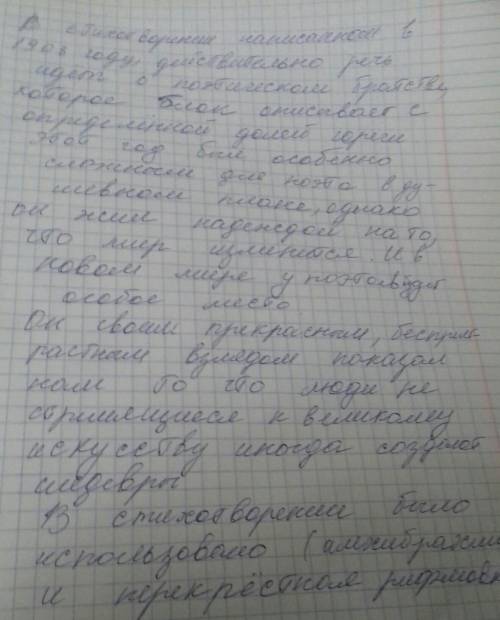 В стихотворении написанном в
1908 году, действительно речь
идёт о поэтическом братству,
которое Блок описывает с
определённой долей горечи
Этот год был особенно
сложным для поэта в ду-
шевном плане, однако
он жил надеждой на то,
что мир изменится. И в
новом мире у поэта будет
особое место
Он своим прекрасным, беспри-
растным взглядом показал
нам то что люди не
стримящиеся к великому
искусству иногда создают
шедевры
В стихотворении было
использовано (амхибрахми
и перекрёстная рифмовк